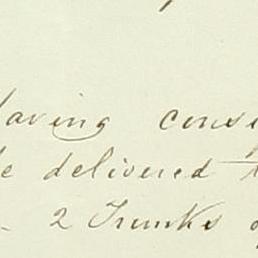 having cons
be delivered t
2 Trunks o